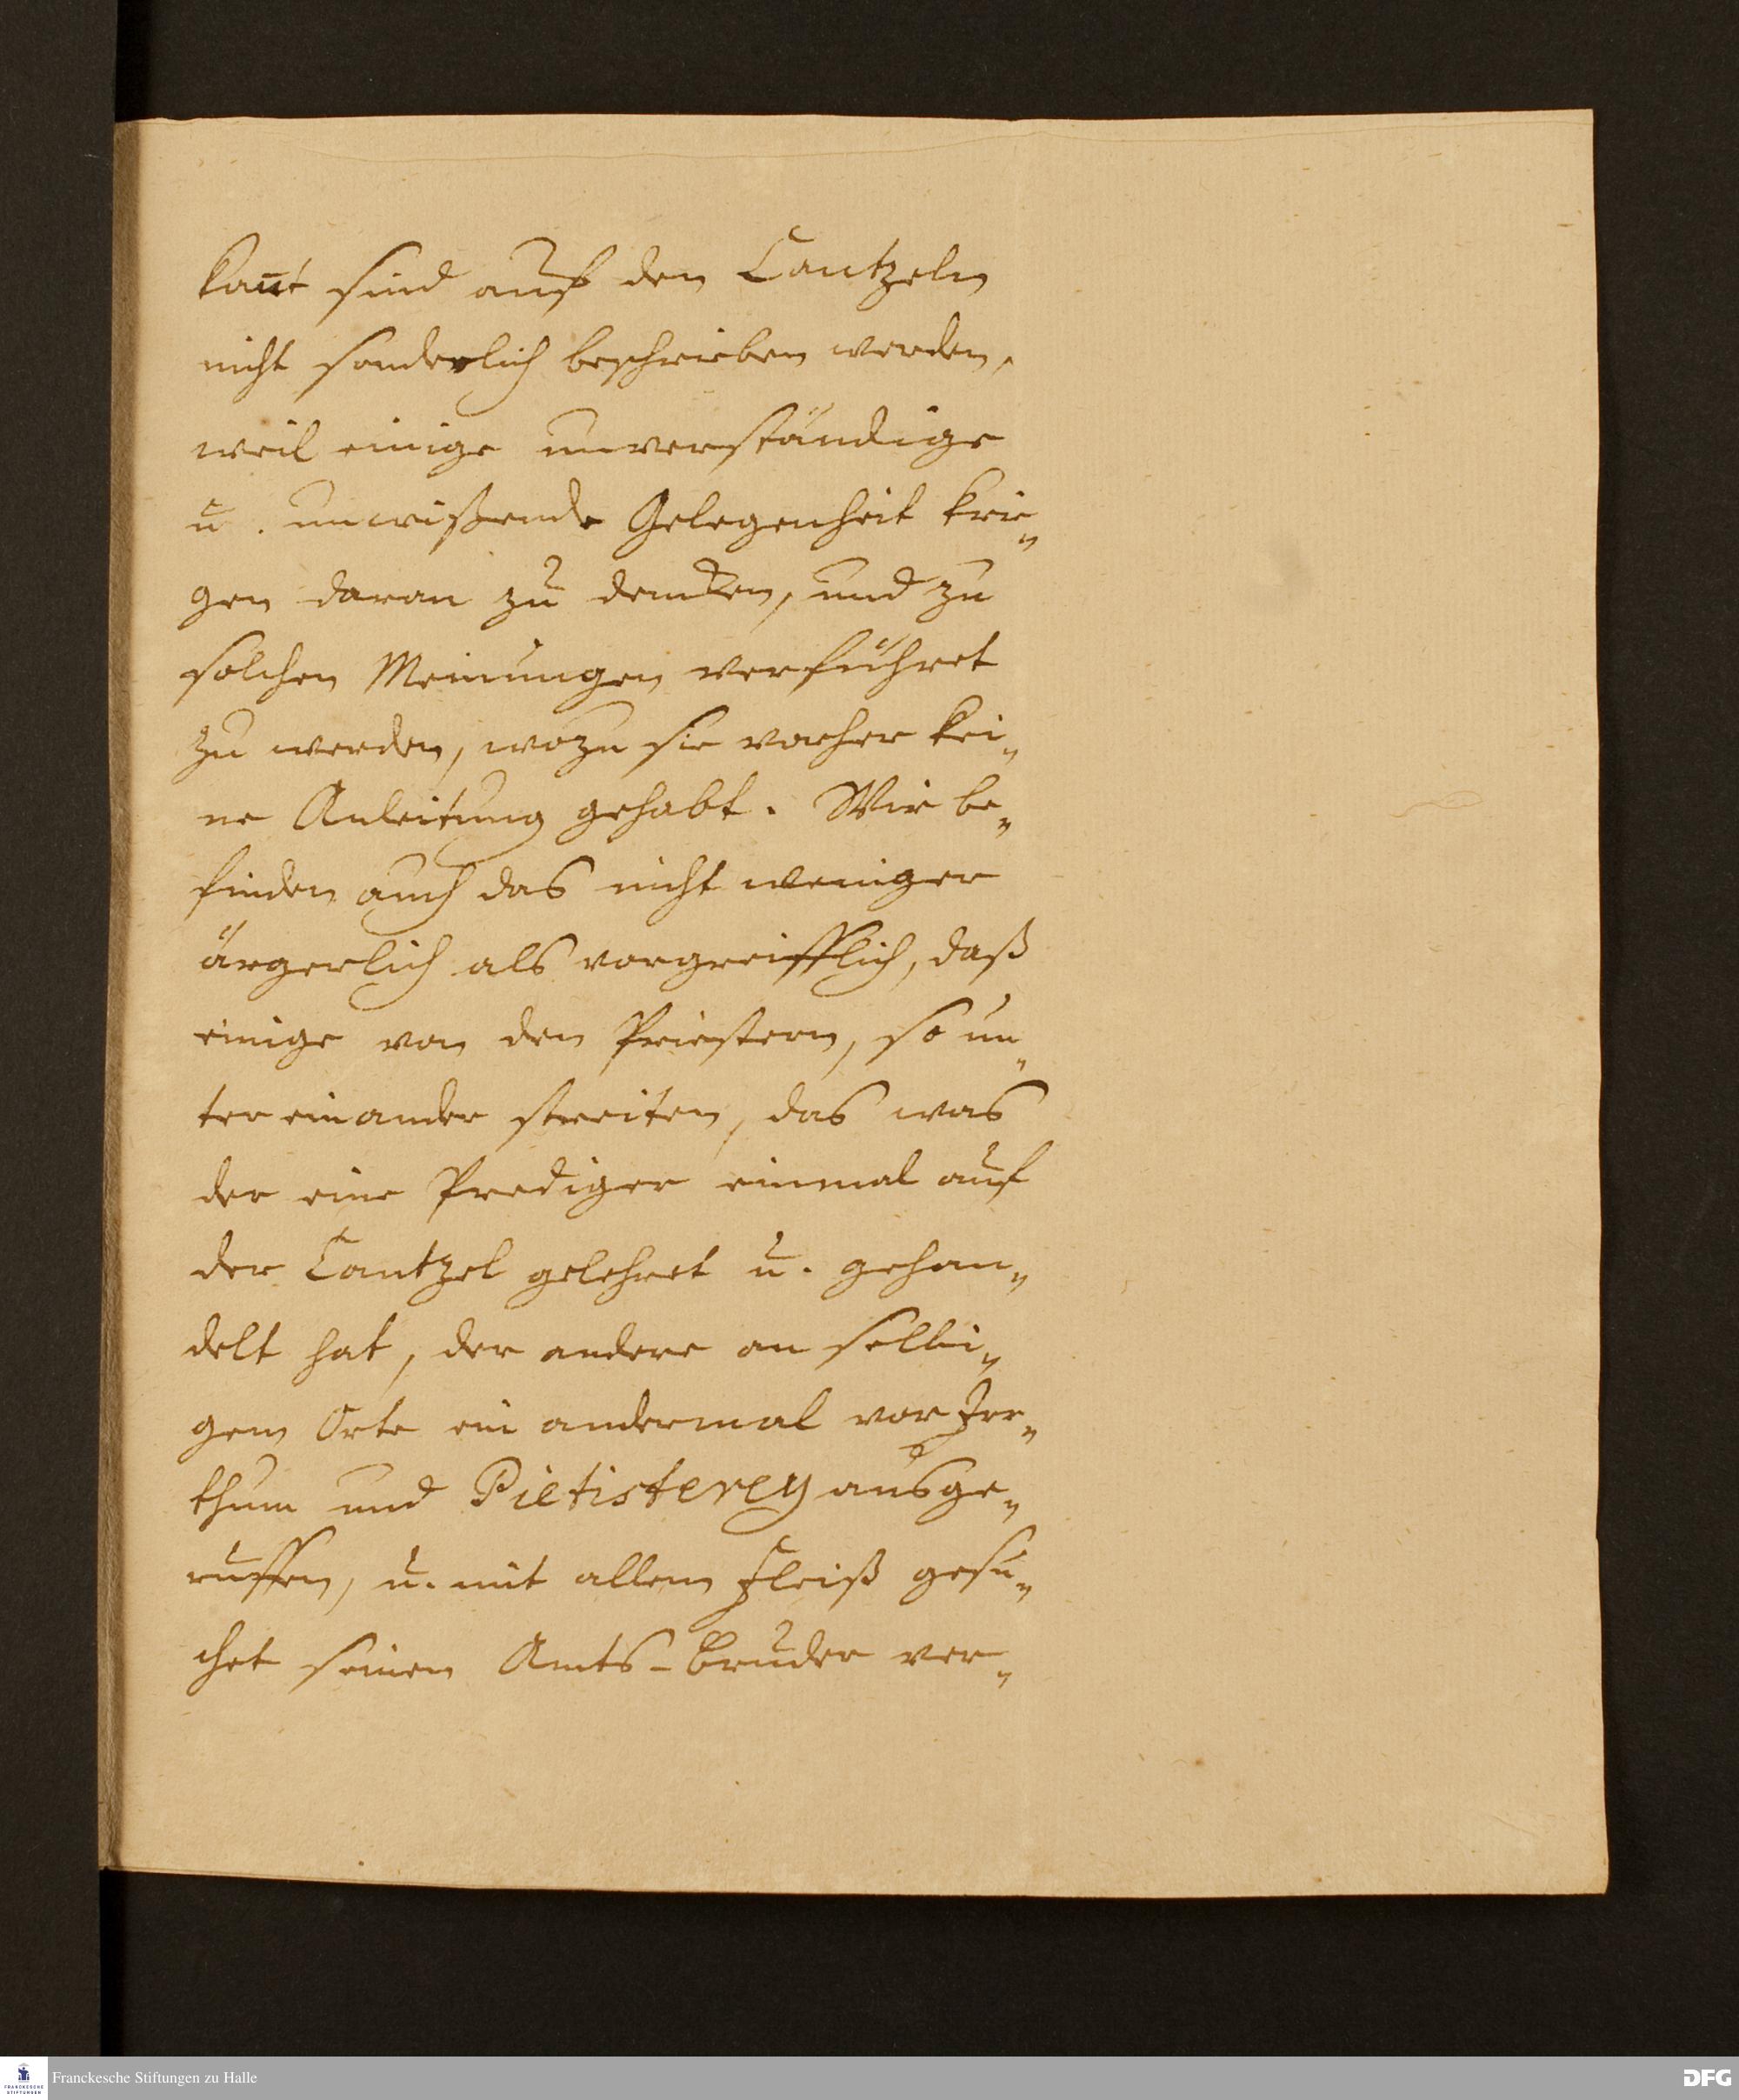 kan̄t sind auf den Cantzeln
nicht sonderlich beschrieben werden,
weil einige unverständige
u. unwißende Gelegenheit krie„
gen daran zu dencken, und zu
solchen Meinungen verführet
zu werden, wozu sie vorher kei„
ne Anleitung gehabt. Wir be„
finden auch das nicht weniger
ärgerlich als vorgreifflich, daß
einige von den Priestern, so un„
ter einander streiten, das was
der eine Prediger einmal auf
der Cantzel gelehret u. gehan„
delt hat, der andere an selbi„
gem Orte ein andermal vor Irr„
thum und Pietisterey ausge„
ruffen, u. mit allem Fleiß gesu„
chet seinen Amts-Bruder ver„
Franckesche Stiftungen zu Halle
FRANCKESCHE
STIFTUNGEN
DFG